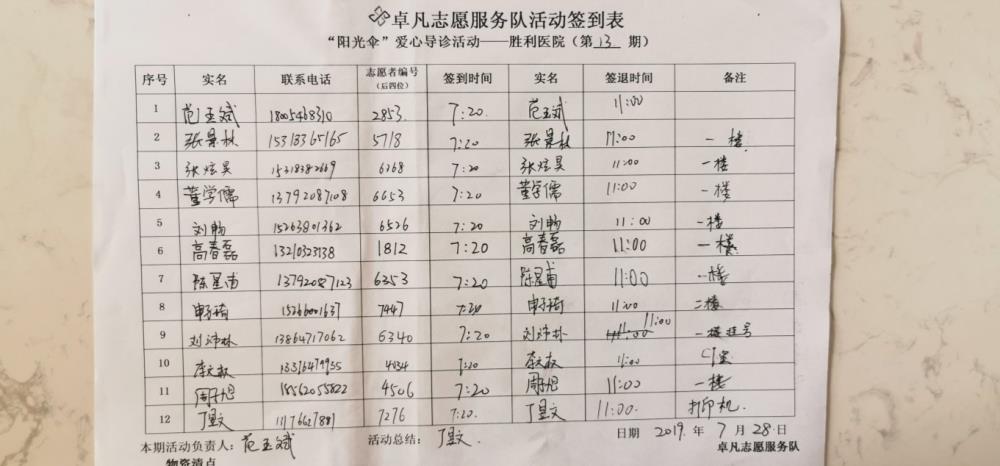 卓凡志愿服务队活动签到表
“阳光伞”爱心导诊活动——胜利医院（第 13 期）
序号 实名 联系电话 志愿者编号（后四位） 签到时间 实名 签退时间 备注
1 范玉斌 18005468310 2853 7:20 范玉斌 11:00
2 张景秋 15313365165 5718 7:20 张景秋 11:00 一楼
3 张炫昊 15318382669 6268 7:20 张炫昊 11:00 一楼
4 董学儒 13792087108 6653 7:20 董学儒 11:00 一楼
5 刘畅 15263801362 6526 7:20 刘畅 11:00 一楼
6 高春磊 13210323138 1812 7:20 高春磊 11:00 一楼
7 陈星甫 13792087123 6353 7:20 陈星甫 11:00 一楼
8 7447 7:20 11:00 二楼
9 刘沛林 13864717062 6340 7:20 刘沛林 11:00 一楼挂号
10 7:20 11:00 门堂
11 周子旭 18562055822 4506 7:20 周子旭 11:00 一楼
12 丁昱文 7276 7:20. 丁昱文 11:00. 打印机
本期活动负责人：范玉斌 活动总结：丁昱文. 日期 2019. 年 7 月 28 日
物资清点 卓凡志愿服务队